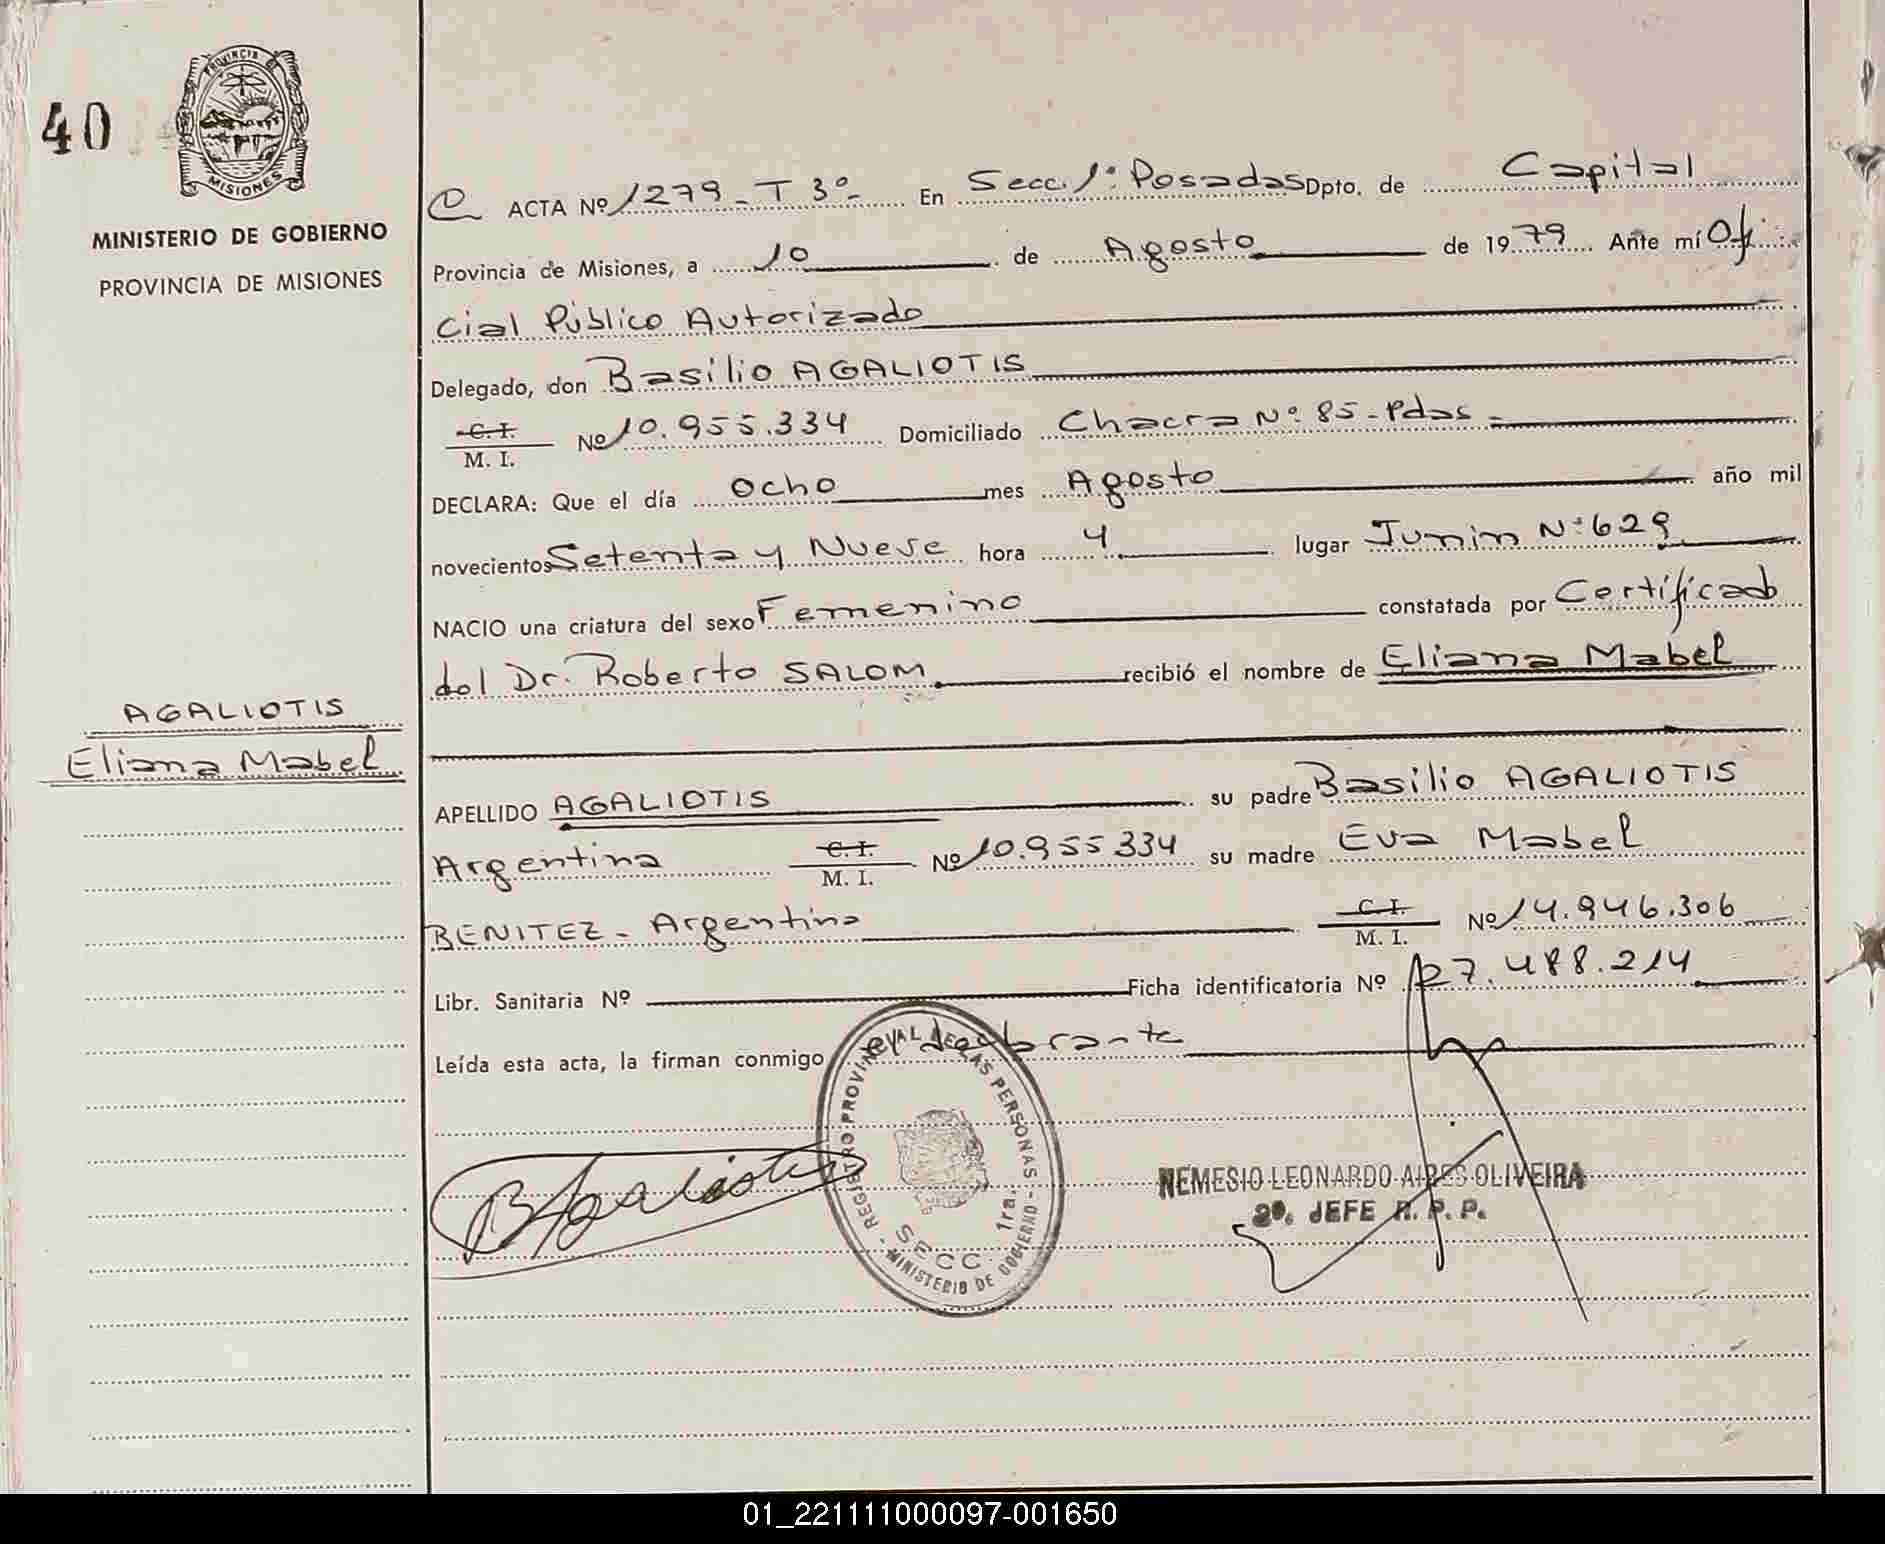 40
PROVINCIA DE
MISIONES
MINISTERIO DE GOBIERNO
PROVINCIA DE MISIONES
AGALIOTIS
Eliana Mabel
ACTA Nº 1279 - T 3º - En Secc. 1ª Posadas Dpto. de Capital
Provincia de Misiones, a 10 de Agosto de 1979 Ante mí Ofi
cial Público Autorizado
Delegado, don Basilio AGALIOTIS
C. I.
M. I. Nº 10.955.334 Domiciliado Chacra Nº 85 - Pdas -
DECLARA: Que el día ocho mes Agosto año mil
novecientos Setenta y Nueve hora 4 lugar Junin Nº 629
NACIO una criatura del sexo Femenino constatada por Certificado
del Dr. Roberto SALOM recibió el nombre de Eliana Mabel
APELLIDO AGALIOTIS su padre Basilio AGALIOTIS
Argentina C. I. M. I. Nº 10.955334 su madre Eva Mabel
BENITEZ - Argentina C. I. M. I. Nº 14.946.306
Libr. Sanitaria Nº Ficha identificatoria Nº 27.488.214
Leída esta acta, la firman conmigo el declarante
REGISTRO PROVINCIAL DE LAS PERSONAS
SECC. 1ra.
MINISTERIO DE GOBIERNO
B Agaliotis
NEMESIO LEONARDO AIRES OLIVEIRA
2º. JEFE R. P. P.
01_221111000097-001650